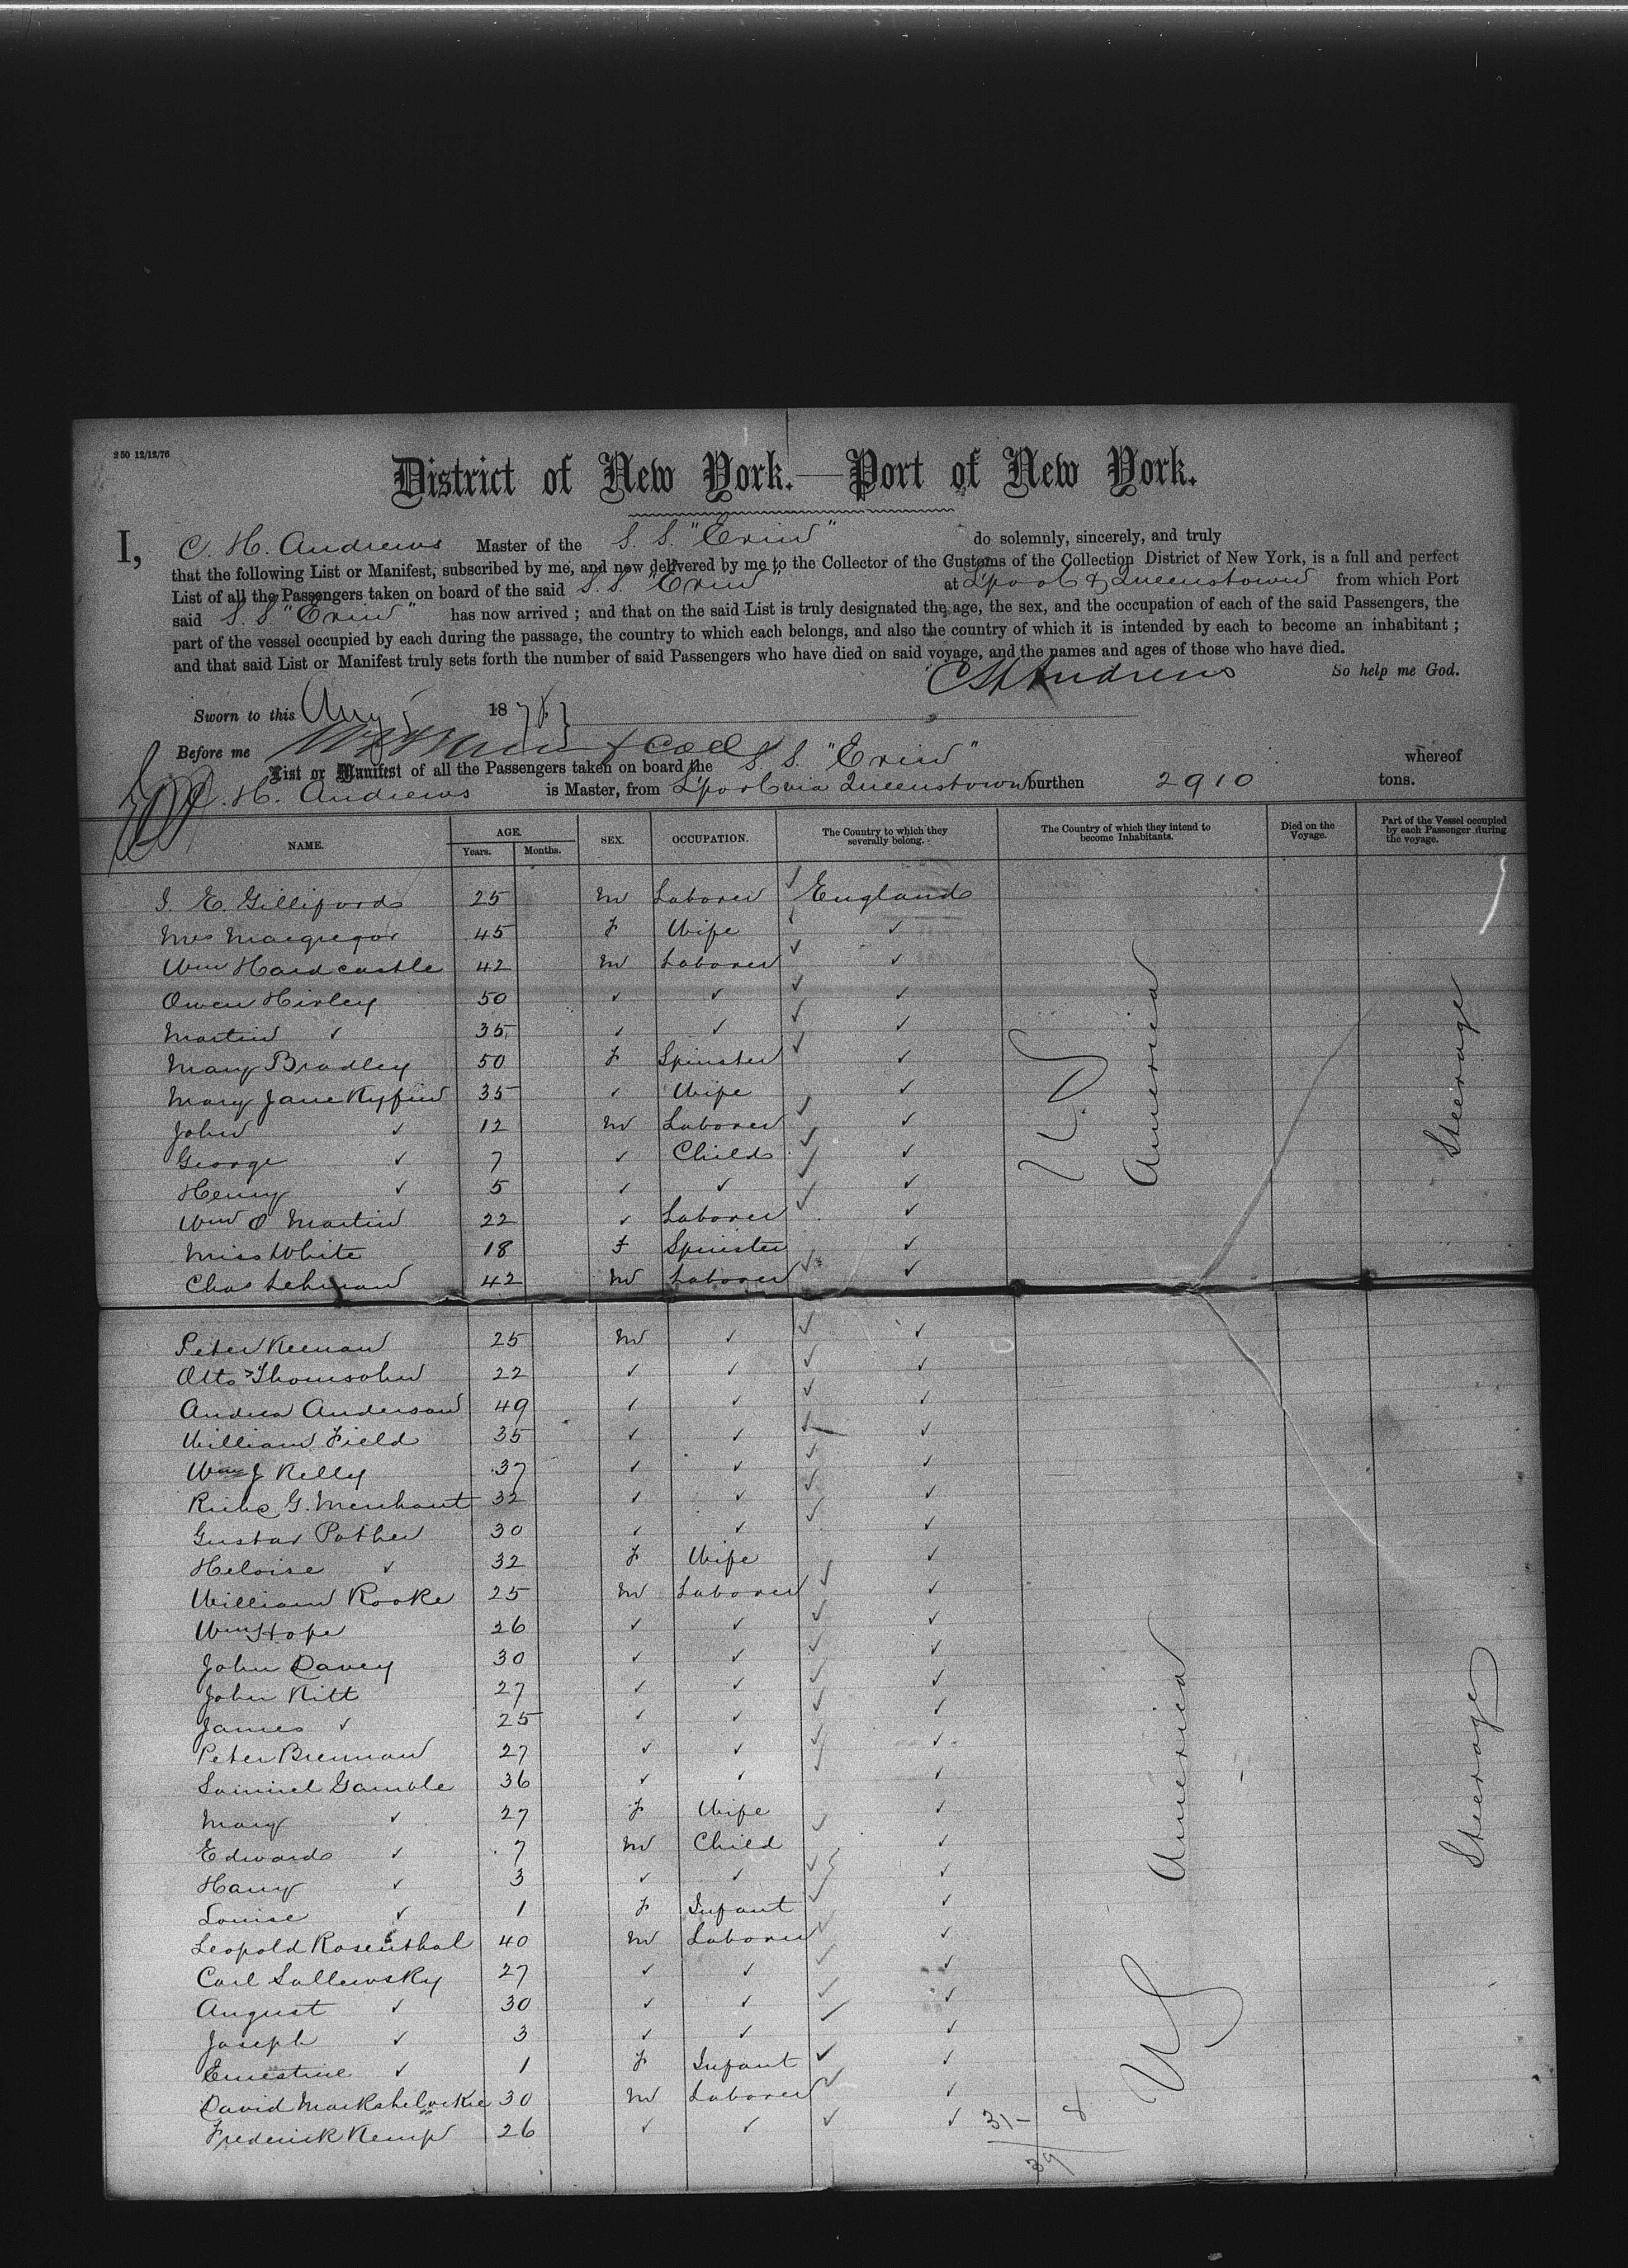 250 12/12/76
District of New York.—Port of New York.
I, C. H. Andrews Master of the S. S. "Erin" do solemnly, sincerely, and truly
that the following List or Manifest, subscribed by me, and now delivered by me to the Collector of the Customs of the Collection District of New York, is a full and perfect
List of all the Passengers taken on board of the said S. S. "Erin" at L'pool & Queenstown from which Port
said S. S. "Erin" has now arrived ; and that on the said List is truly designated the age, the sex, and the occupation of each of the said Passengers, the
part of the vessel occupied by each during the passage, the country to which each belongs, and also the country of which it is intended by each to become an inhabitant ;
and that said List or Manifest truly sets forth the number of said Passengers who have died on said voyage, and the names and ages of those who have died.
C H Andrews So help me God.
Sworn to this Aug 5 1878
Before me
List or Manifest of all the Passengers taken on board the S S. "Erin" whereof
C. H. Andrews is Master, from L'pool via Queenstown burthen 2910 tons.
NAME. AGE. SEX. OCCUPATION. The Country to which they severally belong. The Country of which they intend to become Inhabitants. Died on the Voyage. Part of the Vessel occupied by each Passenger during the voyage.
Years. Months.
I. E. Gilliford 25 M Laborer ✓ England
Mrs Macgregor 45 F Wife ✓
Wm Hardcastle 42 M Laborer ✓ ✓
Owen Hirley 50 ✓ ✓ ✓ ✓
Martin ✓ 35 ✓ ✓ ✓ ✓
Mary Bradley 50 F Spinster ✓ ✓
Mary Jane Kyffin 35 ✓ Wife ✓
John ✓ 12 M Laborer ✓ ✓
George ✓ 7 ✓ Child ✓ ✓
Henry ✓ 5 ✓ ✓ ✓ ✓
Wm O Martin 22 ✓ Laborer ✓ ✓
Miss White 18 F Spinster ✓
Chas Lehman 42 M Laborer ✓ ✓
U.S
America
Steerage
Peter Keenan 25 M ✓ ✓ ✓
Otto Thomsohn 22 ✓ ✓ ✓ ✓
Andrea Anderson 49 ✓ ✓ ✓ ✓
William Field 35 ✓ ✓ ✓ ✓
Wm J Kelly 37 ✓ ✓ ✓ ✓
Richd G. Merchant 32 ✓ ✓ ✓ ✓
Gustav Pother 30 ✓ ✓ ✓ ✓
Heloise ✓ 32 F Wife ✓
William Rooke 25 M Laborer ✓ ✓
Wm Hope 26 ✓ ✓ ✓ ✓
John Davey 30 ✓ ✓ ✓ ✓
John Kitt 27 ✓ ✓ ✓ ✓
James ✓ 25 ✓ ✓ ✓ ✓
Peter Brennan 27 ✓ ✓ ✓ ✓
Samuel Gamble 36 ✓ ✓ ✓ ✓
Mary ✓ 27 F Wife ✓
Edward ✓ 7 M Child ✓ ✓
Harry ✓ 3 ✓ ✓ ✓ ✓
Louise ✓ 1 F Infant ✓ ✓
Leopold Rosenthal 40 M Laborer ✓ ✓
Carl Sallewsky 27 ✓ ✓ ✓ ✓
August ✓ 30 ✓ ✓ ✓ ✓
Joseph ✓ 3 ✓ ✓ ✓ ✓
Ernestine ✓ 1 F Infant ✓ ✓
David Markshelockie 30 M Laborer ✓ ✓
Frederick Kemp 26 ✓ ✓ ✓ ✓
America
US
Steerage
31 – 8
39